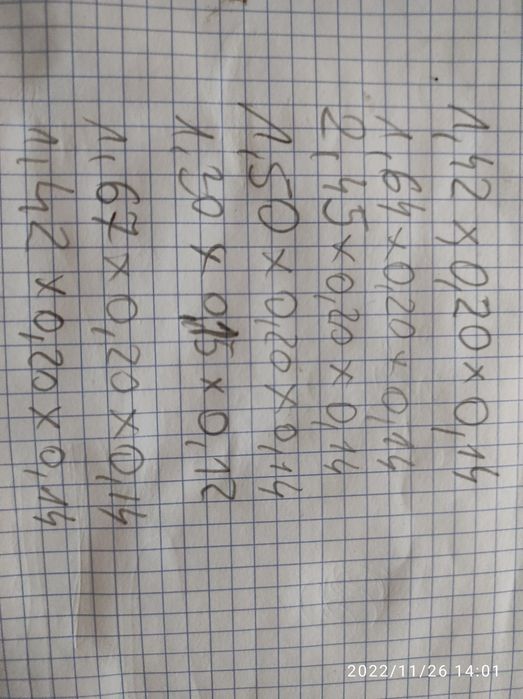 1,42 x 0,20 x 0,14
1,64 x 0,20 x 0,14
2,45 x 0,20 x 0,14
1,50 x 0,20 x 0,14
1,30 x 0,15 x 0,12
1,67 x 0,20 x 0,14
1,42 x 0,20 x 0,14
2022/11/26 14:01